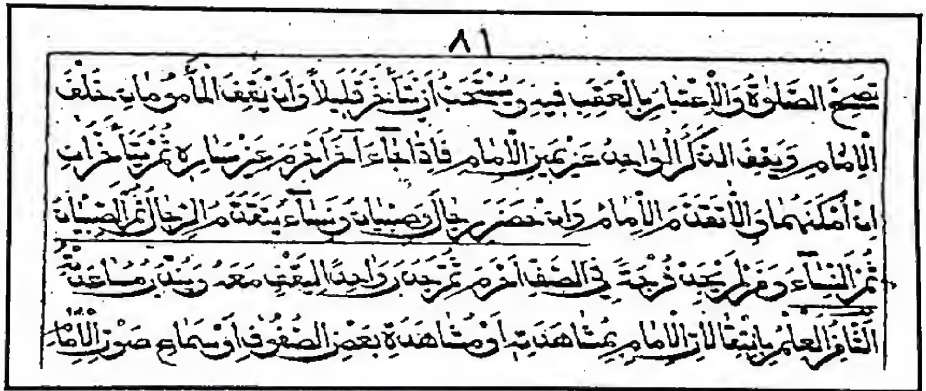 ٨١
تَصِحَّ الصَّلٰوةُ وَالْاِعْتِبَارُ بِالْعَقِبِ فِيهِ وَيُسْتَحَبُّ اَنْ يَتَأَخَّرَ قَلِيلاً وَاَنْ يَقِفَ الْمَأْمُومَانِ خَلْفَ
الْاِمَامِ وَيَقِفُ الذَّكَرُ الْوَاحِدُ عَنْ يَمِينِ الْاِمَامِ فَاِذَا جَآءَ آخَرُ اَحْرَمَ عَنْ يَسَارِهِ ثُمَّ يَتَأَخَّرَانِ
اِنْ اَمْكَنَهُمَا وَاِلَّا تَقَدَّمَ الْاِمَامُ وَاِنْ حَضَرَ رِجَالٌ وَصِبْيَانٌ وَنِسَآءٌ يَتَقَدَّمُ الرِّجَالُ ثُمَّ الصِّبْيَانُ
ثُمَّ النِّسَآءُ وَمَنْ لَمْ يَجِدْ فُرْجَةً فِي الصَّفِّ اَحْرَمَ ثُمَّ جَذَبَ وَاحِدًا لِيَقِفَ مَعَهُ وَيُنْدَبُ مُسَاعَدَتُهُ
الثَّانِي الْعِلْمُ بِانْتِقَالَاتِ الْاِمَامِ بِمُشَاهَدَتِهِ اَوْ مُشَاهَدَةِ بَعْضِ الصُّفُوفِ اَوْ سَمَاعِ صَوْتِ الْاِمَامِ